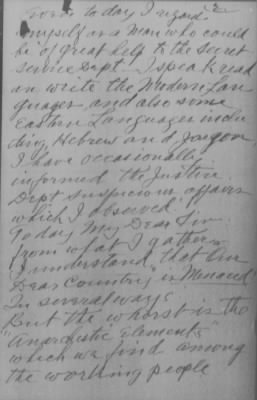 to day I regard
myself as a Man who could
be of great help to the Secret
service Dept I speak read
an write the Modern Lan
guages and also some
Eastern Languages inclu
ding, Hebrews and Jargon,
I have occasionally
informed the Justice
Dept suspicious affairs
which I observed
To day My Dear Sir
from what I gathers
I understand that Our
Dear Country is Menaced
In several ways
But the whorst is the
"Anarchistic Elements"
which we find among
the working people